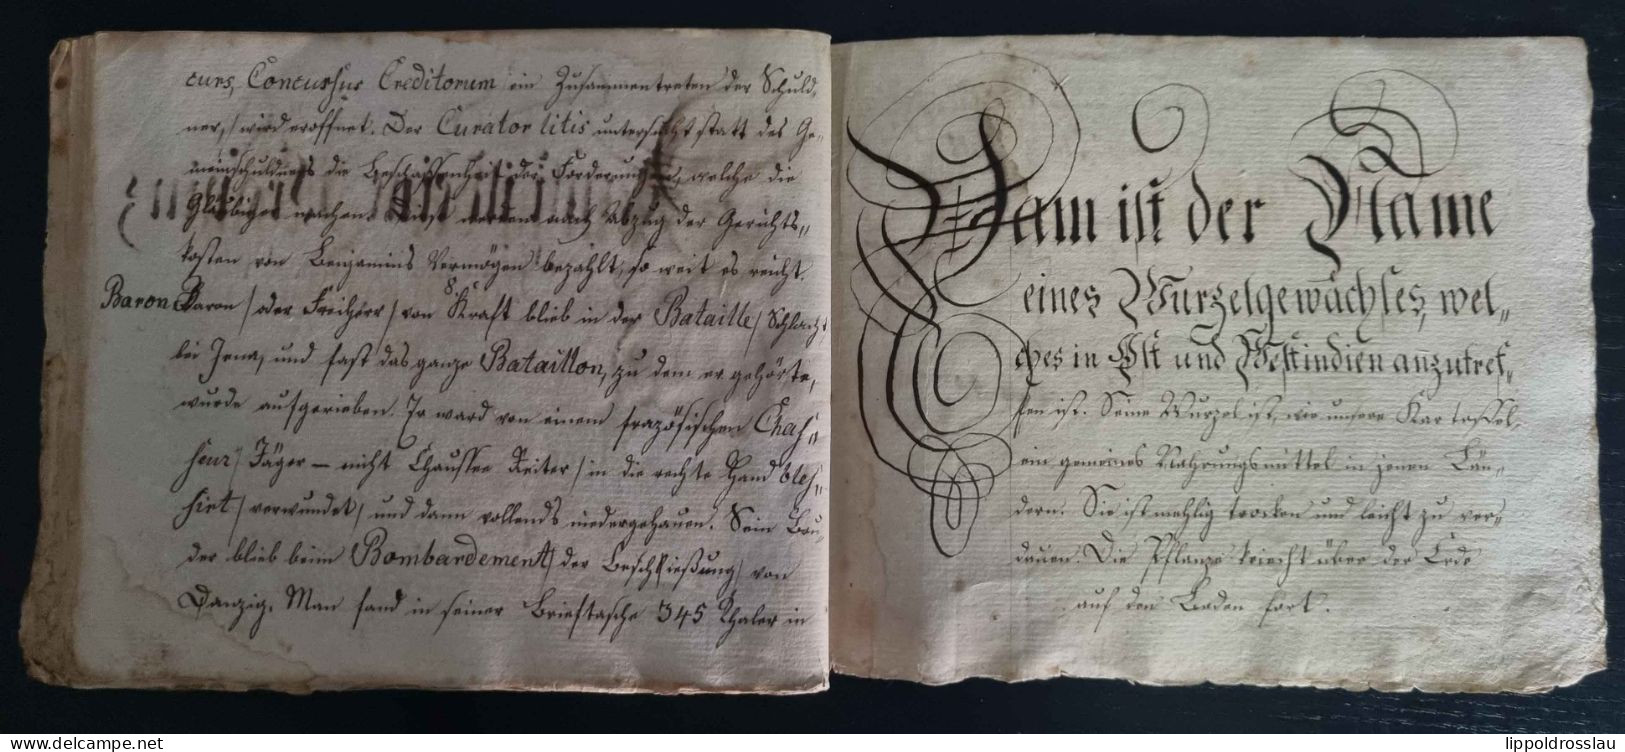 curs, Concursus Creditorum ein Zusammentreten der Schuld-
ner, wird eröffnet. Der Curator litis untersucht statt des Ge-
meinschuldners die Beschaffenheit der Forderungen, welche die
Gläubiger machen. Diese werden nach Abzug der Gerichts-
kosten von Benjamins Vermögen bezahlt, so weit es reicht.
Baron Baron / oder Freiherr / von Kraft blieb in der Bataille / Schlacht
8.
bei Jena, und fast das ganze Bataillon, zu dem er gehörte,
wurde aufgerieben. Er ward von einem frazösischen Chas-
seur / Jäger — nicht Chaussee Reiter / in die rechte Hand bles-
sirt / verwundet / und dann vollends niedergehauen. Sein Bru-
der blieb beim Bombardement / der Beschießung / von
Danzig. Man fand in seiner Brieftasche 345 Thaler in
Yam ist der Name
eines Wurzelgewächses, wel-
ches in Ost und Westindien anzutref-
fen ist. Seine Wurzel ist, wie unsere Kartoffel,
ein gemeines Nahrungsmittel in jenen Län-
dern. Sie ist mehlig trocken und leicht zu ver-
dauen. Die Pflanze kriecht über der Erde
auf den Boden fort.
lippoldrosslau